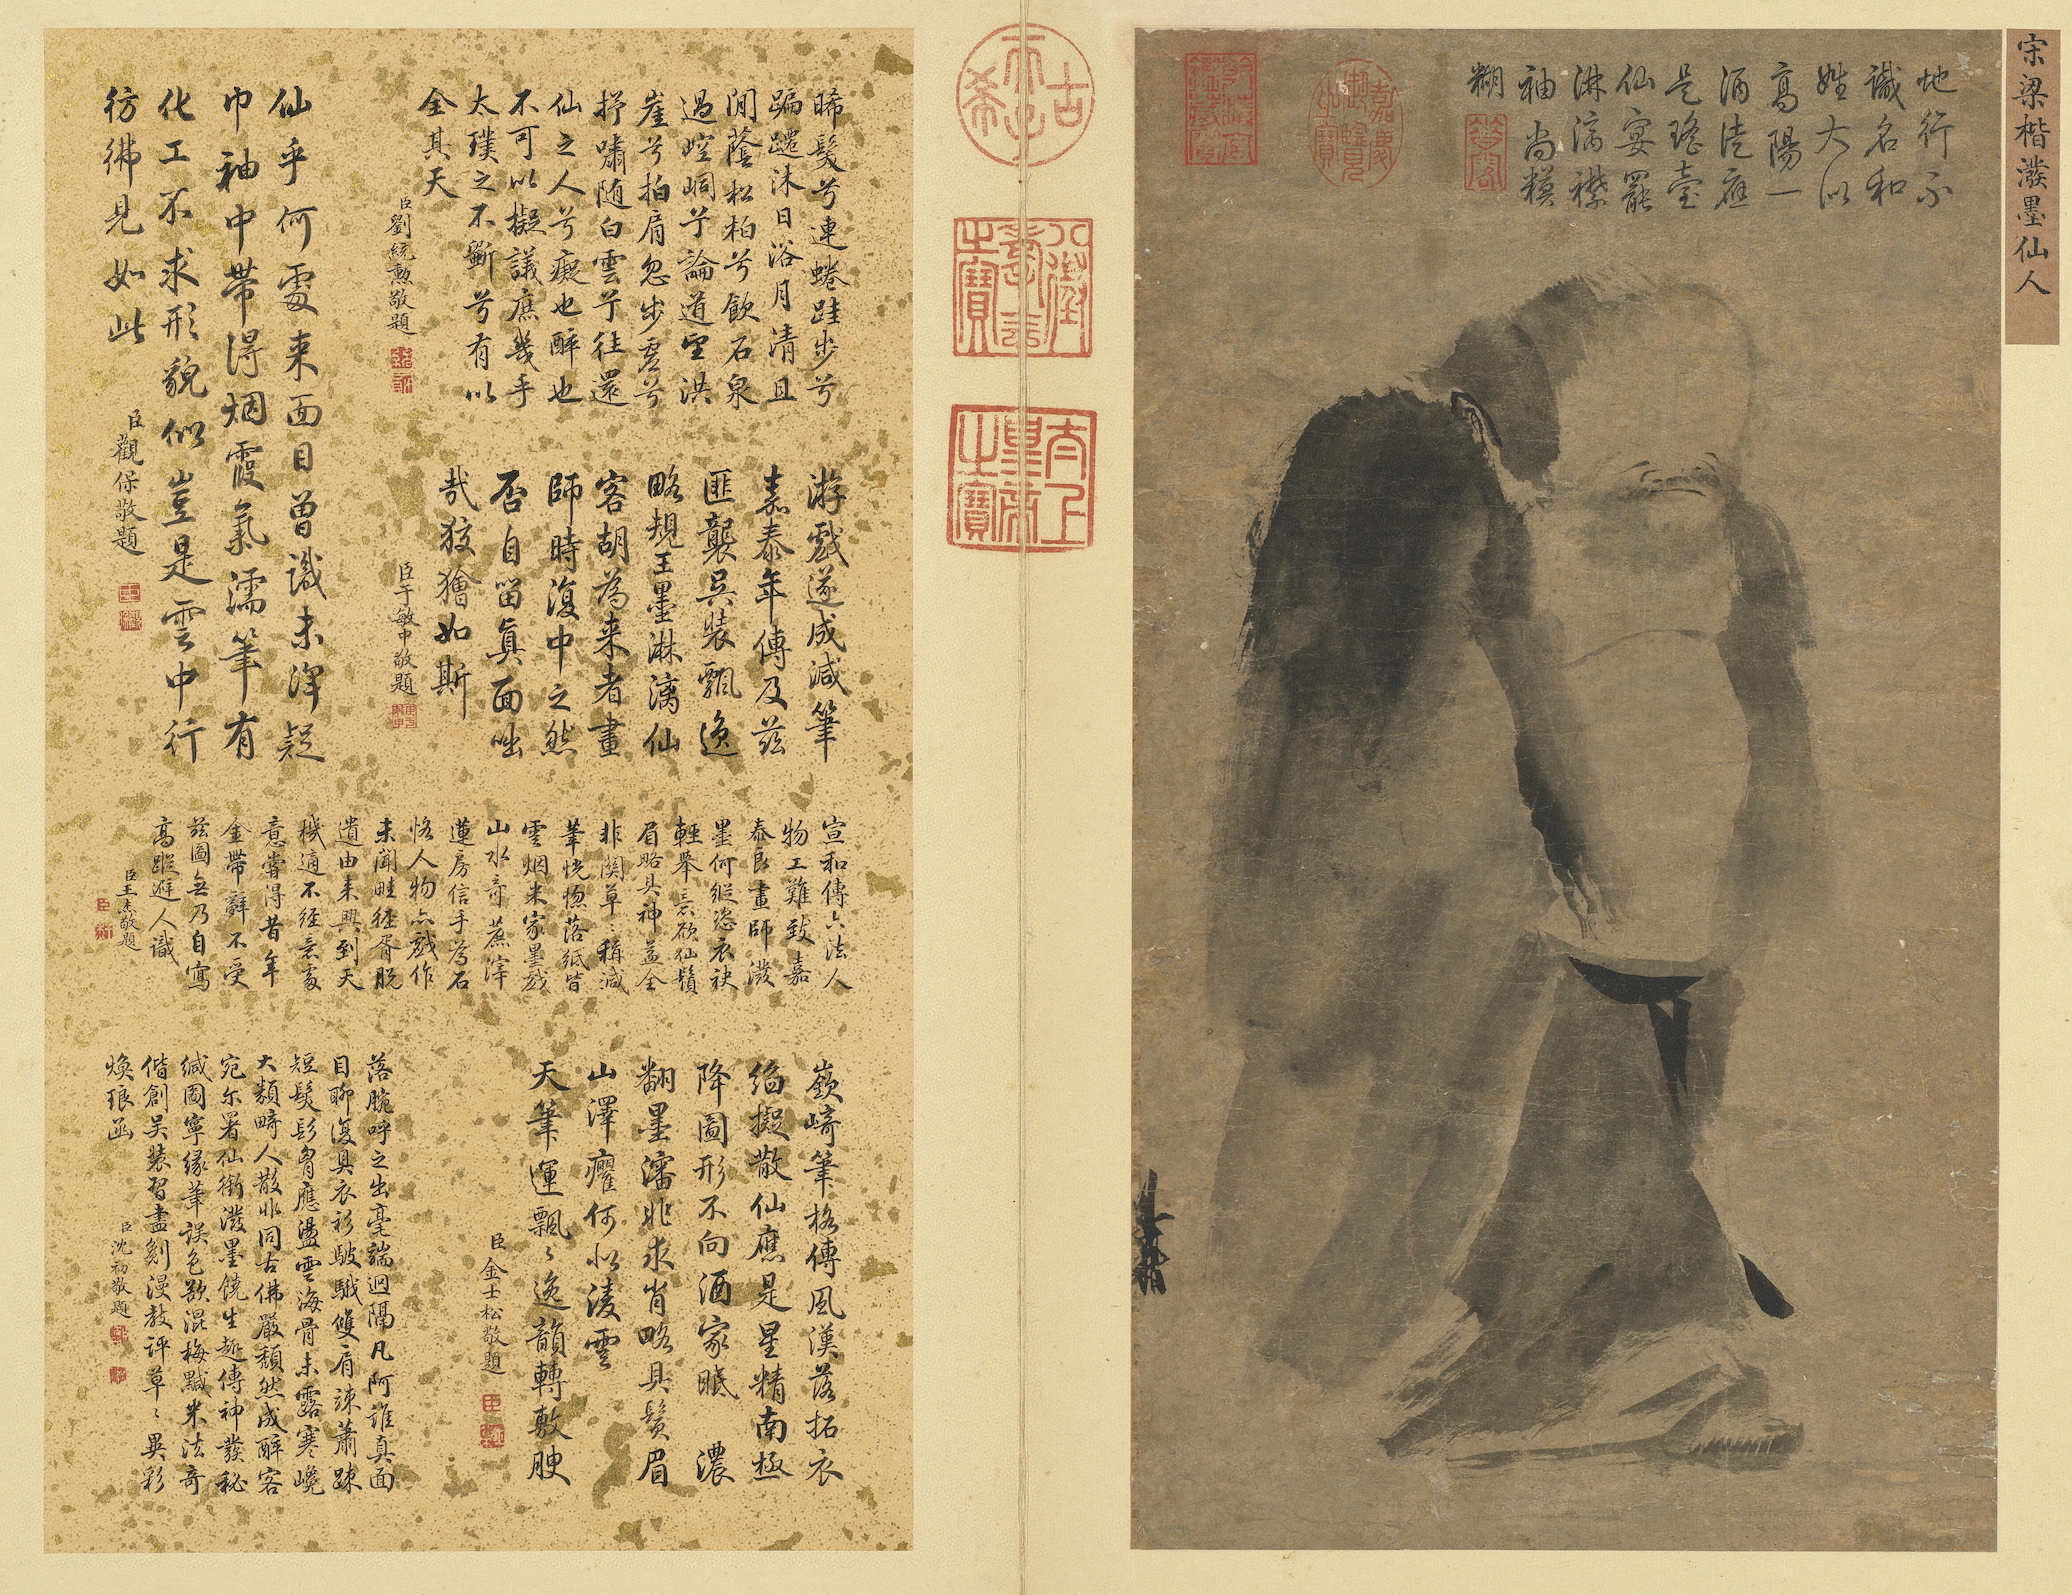 宋梁楷潑墨仙人
地行不
識名和
姓大似
高陽一
酒徒應
是瑤臺
仙宴罷
淋漓襟
袖尚模
糊
嘉慶御覽之寶
古希天子
八徵耄念之寶
太上皇帝之寶
晞髮兮連蜷跬步兮
蹁躚沐日浴月清且
閒蔭松柏兮飲石泉
過崆峒兮論道里洪
崖兮拍肩忽步虛兮
抒嘯隨白雲兮往還
仙之人兮癡也醉也
不可以擬議庶幾乎
太璞之不斲兮有以
全其天
臣劉統勲敬題
游戲遂成減筆
嘉泰年傳及茲
匪襲吳裝飄逸
略規王墨淋漓仙
客胡為来者畫
師時復中之然
否自留真面咄
哉狡獪如斯
臣于敏中敬題
仙乎何處来面目曾識未渾疑
巾袖中帶得烟霞氣濡筆有
化工不求形貌似豈是雲中行
彷彿見如此
臣觀保敬題
宣和傳六法人
物工難致嘉
泰良畫師潑
墨何縱恣衣袂
輕舉意欲仙鬚
眉略具神益全
非關草〻稱減
筆恍惚落紙皆
雲烟米家墨戲
山水奇蔗滓
蓮房信手為石
恪人物亦戲作
未聞畦徑胥脫
遺由来興到天
機適不經意處
意嘗得昔年
金帶辭不受
茲圖無乃自寫
高蹤避人識
臣王杰敬題
嶔崎筆格傳風漢落拓衣
絈擬散仙應是星精南極
降圖形不向酒家眠 濃
翻墨瀋非求肖略具鬚眉
山澤癯何似淩雲
天筆運飄〻逸韻轉敷腴
臣金士松敬題
落腕呼之出毫端迥隔凡阿誰真面
目聊復具衣衫駊騀雙肩竦蕭疎
短髮髟胷應盪雲海骨未露寒巉
大類畸人散非同古佛嚴頹然成醉客
宛尔署仙銜潑墨饒生趣傳神發秘
緘圖寧緣筆誤色欲混梅黬米法奇
偕創吳裝習盡剗漫教評草〻異彩
煥琅函
臣沈初敬題